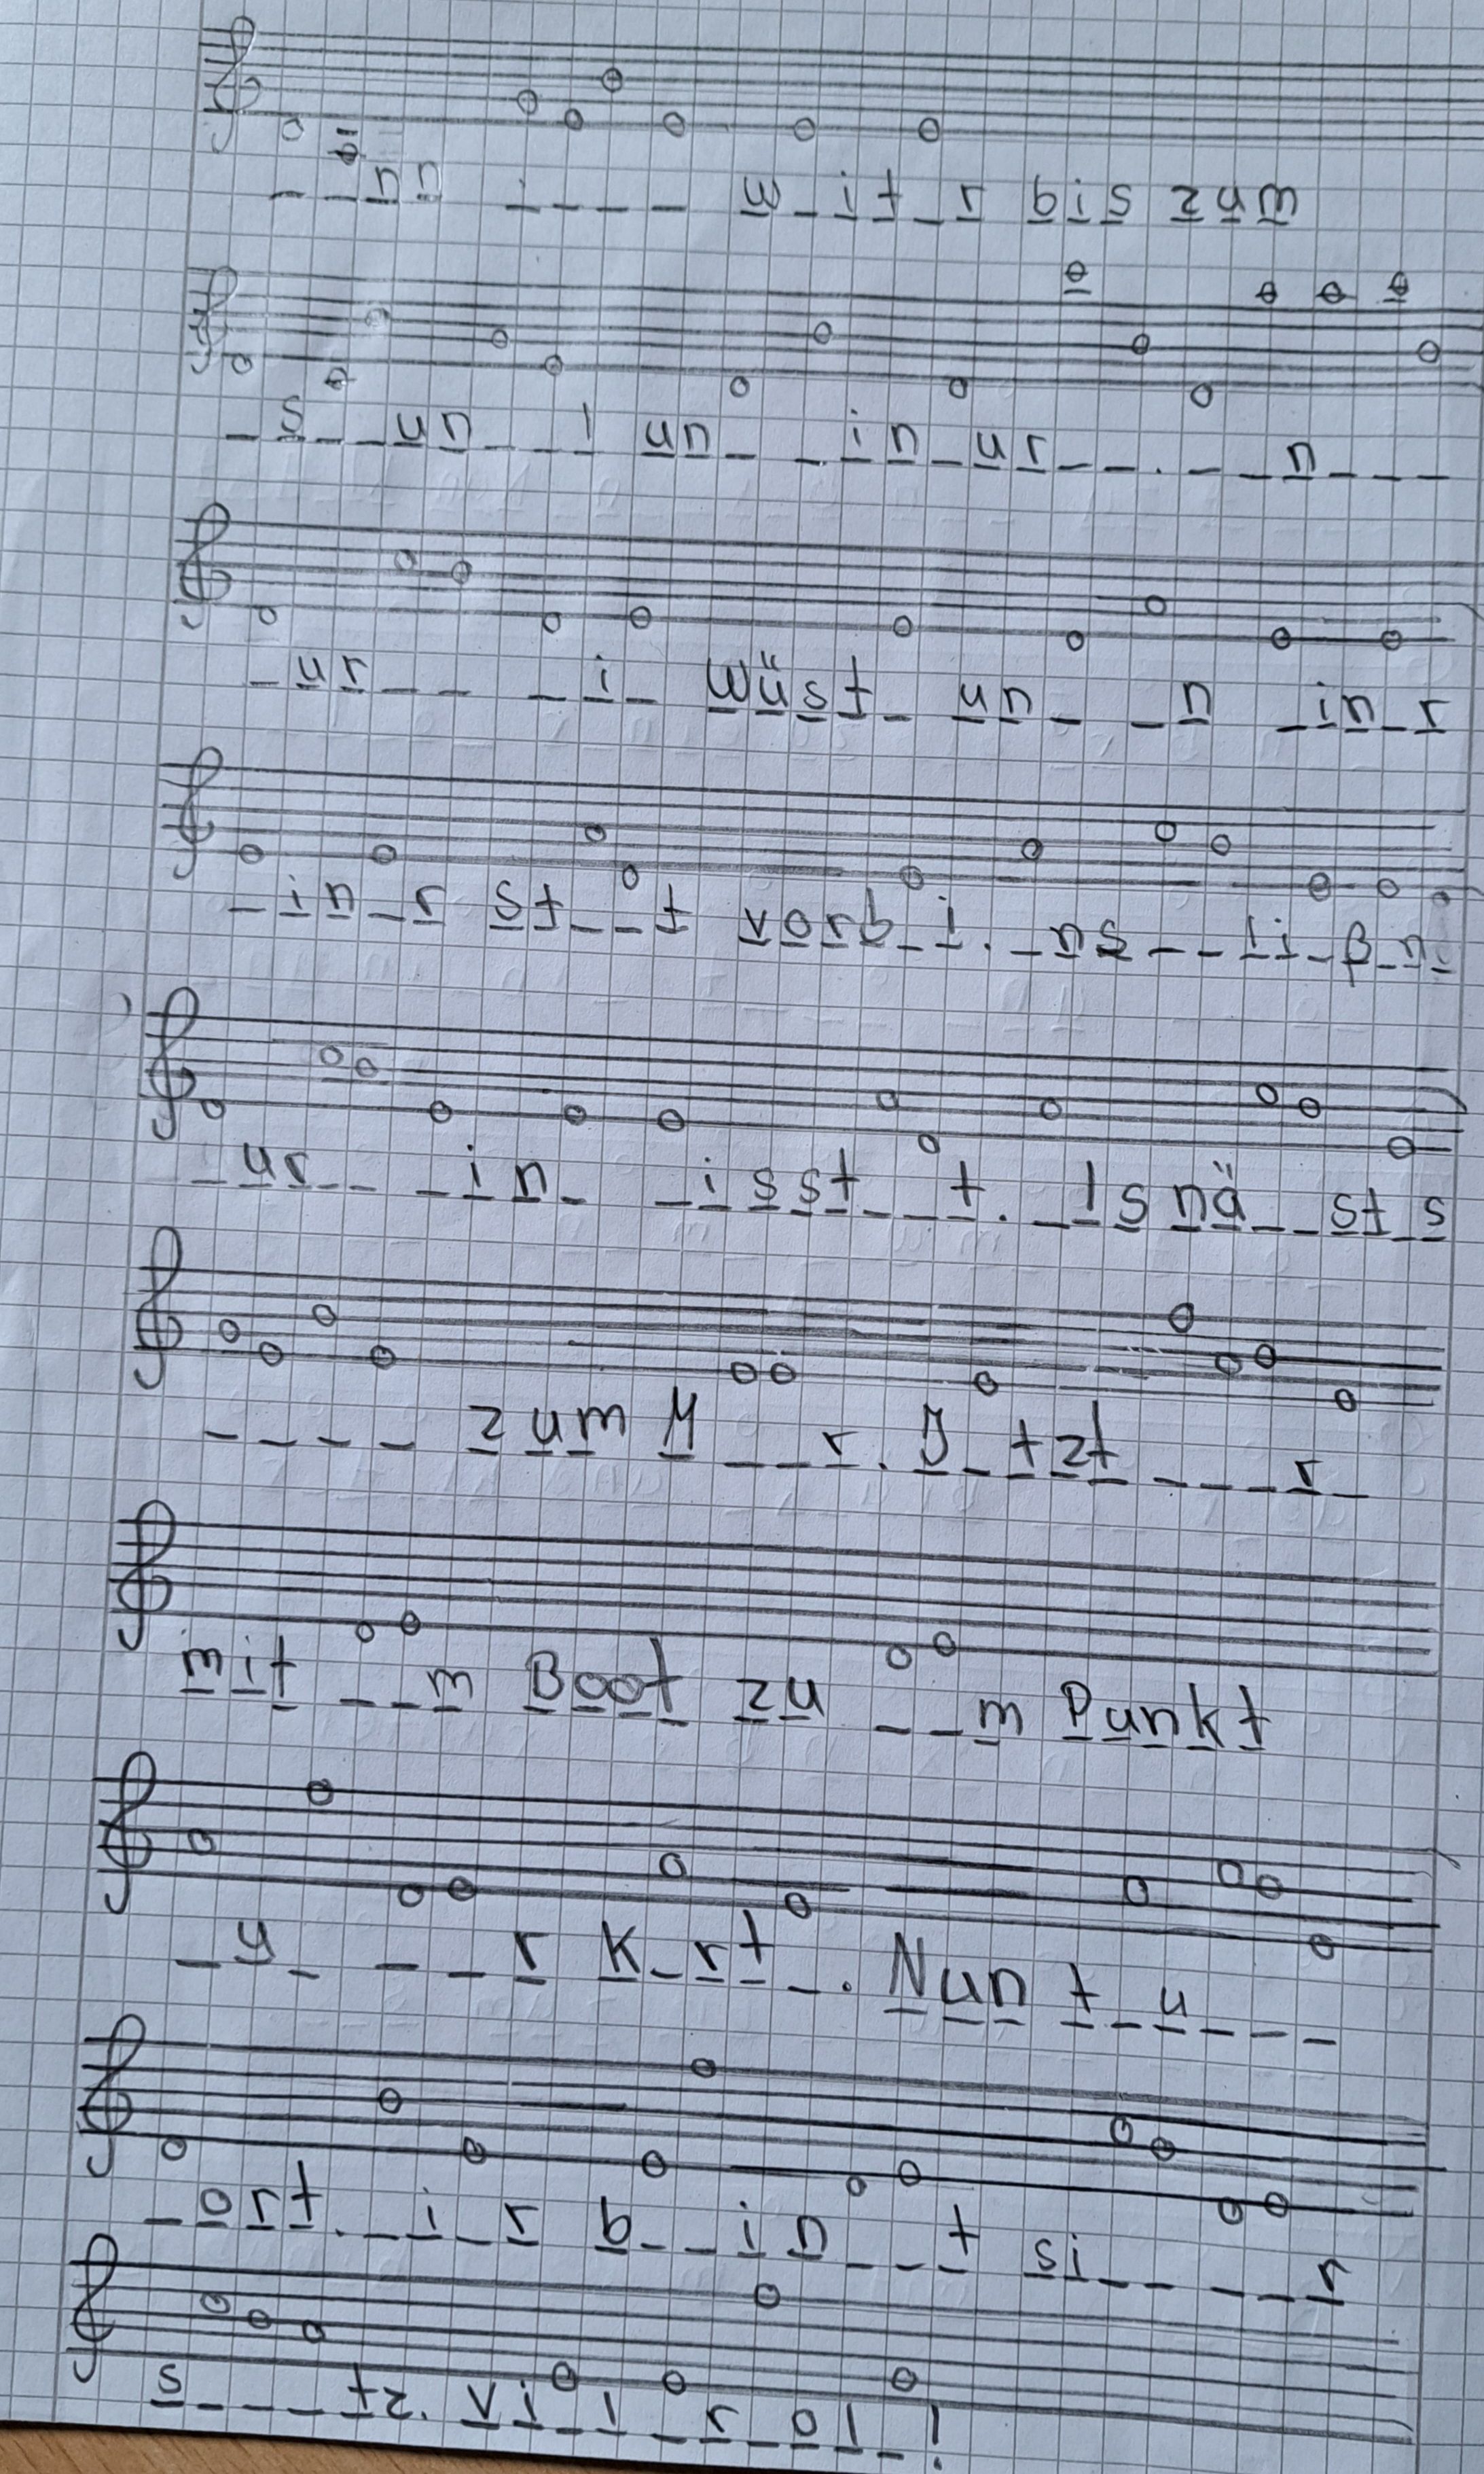 __nn ____ w_it_r bis zum
_s__un__l un_ _in_ur__. ___n___
_ur__ _i_ Wüst_ un_ _n _in_r
_in_r St__t vorb_i. _ns__li_ß_n_
_ur__ _in_ _isst__t. _ls nä__st_s
____ zum M__r. J_tzt ____r_
mit __m Boot zu __m Punkt
_y_ __r K_rt_. Nun t_u___
_ort. _i_r b__in__t si__ __r
s___tz. Vi_l _r_ol_!